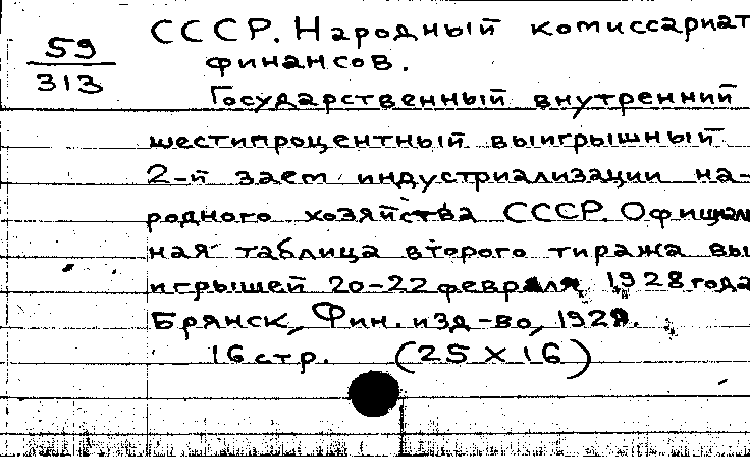 59
313
СССР. Народный комиссариат
финансов.
Государственный внутренний
шестипроцентный выигрышный
2-й заем индустриализации на-
родного хозяйства СССР. Официаль
ная таблица второго тиража вы
игрышей 20-22 февраля 1928 года
Брянск, Фин. изд-во, 1928.
16 стр. (25 X 16)